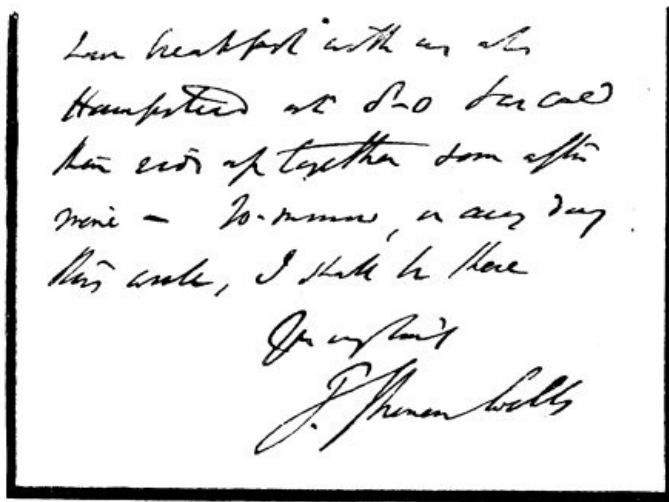 breakfast with us at
Hampstead at 8-0 &
then ride up together soon after
nine – To-morrow, or any day
this week, I shall be there
Yrs
T. Spencer Wells